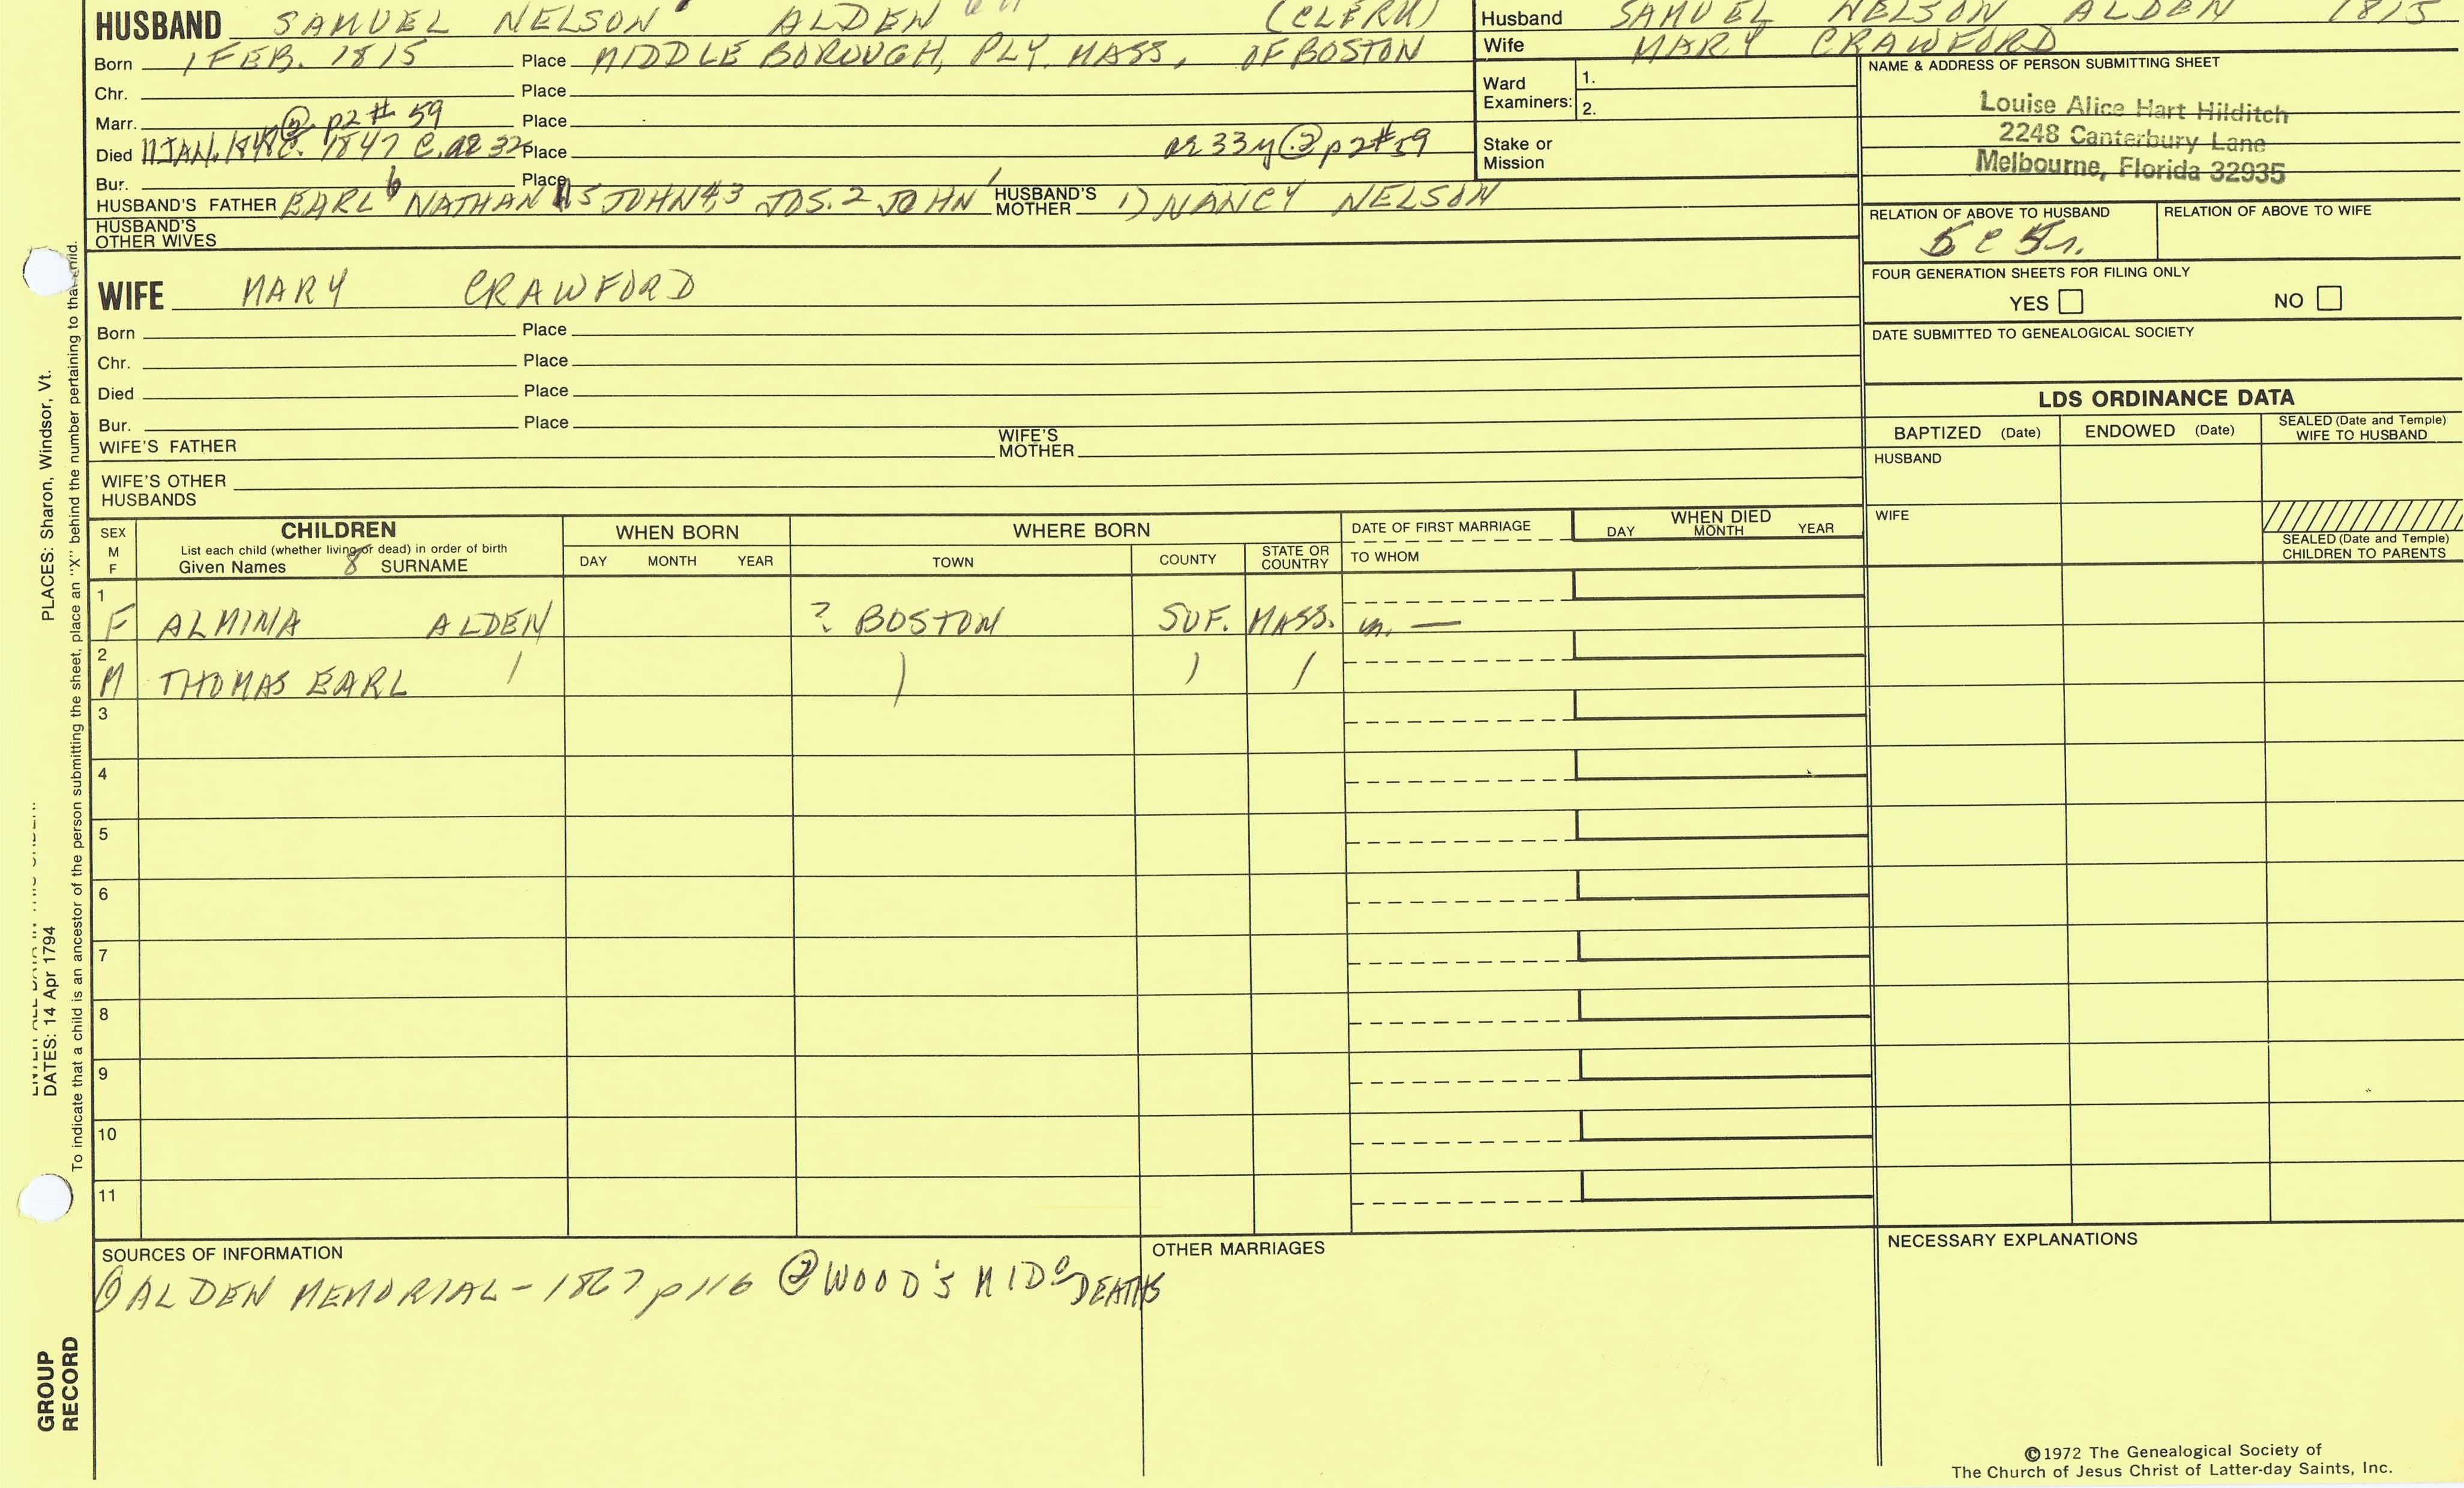 HUSBAND SAMUEL NELSON ALDEN (CLERK)
Born 1 FEB. 1815 Place MIDDLE BOROUGH, PLY. MASS, OF BOSTON
Chr. Place
Marr. @ p2 # 59 Place
Died 11 JAN. 1848 C. 1847 C. ae 32 Place ae 33y @ p2 #59
Bur. Place
HUSBAND'S FATHER EARL 6 NATHAN 5 JOHN 4,3 JOS. 2 JOHN 1 HUSBAND'S MOTHER 1) NANCY NELSON
HUSBAND'S OTHER WIVES
Husband SAMUEL NELSON ALDEN 1815
Wife MARY CRAWFORD
Ward Examiners: 1.
2.
Stake or Mission
NAME & ADDRESS OF PERSON SUBMITTING SHEET
Louise Alice Hart Hilditch
2248 Canterbury Lane
Melbourne, Florida 32935
RELATION OF ABOVE TO HUSBAND RELATION OF ABOVE TO WIFE
FOUR GENERATION SHEETS FOR FILING ONLY
YES NO
DATE SUBMITTED TO GENEALOGICAL SOCIETY
WIFE MARY CRAWFORD
Born Place
Chr. Place
Died Place
Bur. Place
WIFE'S FATHER WIFE'S MOTHER
WIFE'S OTHER HUSBANDS
LDS ORDINANCE DATA
BAPTIZED (Date) ENDOWED (Date) SEALED (Date and Temple) WIFE TO HUSBAND
HUSBAND
WIFE
SEALED (Date and Temple) CHILDREN TO PARENTS
SEX M F
CHILDREN
List each child (whether living or dead) in order of birth
Given Names 8 SURNAME
WHEN BORN
DAY MONTH YEAR
WHERE BORN
TOWN COUNTY STATE OR COUNTRY
DATE OF FIRST MARRIAGE
TO WHOM
WHEN DIED
DAY MONTH YEAR
1
F ALMINA ALDEN ? BOSTON SUF. MASS. m. —
2
M THOMAS EARL
3
4
5
6
7
8
9
10
11
SOURCES OF INFORMATION
ALDEN MEMORIAL - 1867 p116 @ WOOD'S MIDO DEATHS
OTHER MARRIAGES
NECESSARY EXPLANATIONS
©1972 The Genealogical Society of
The Church of Jesus Christ of Latter-day Saints, Inc.
PLACES: Sharon, Windsor, Vt.
DATES: 14 Apr 1794
To indicate that a child is an ancestor of the person submitting the sheet, place an "X" behind the number pertaining to that child.
GROUP
RECORD